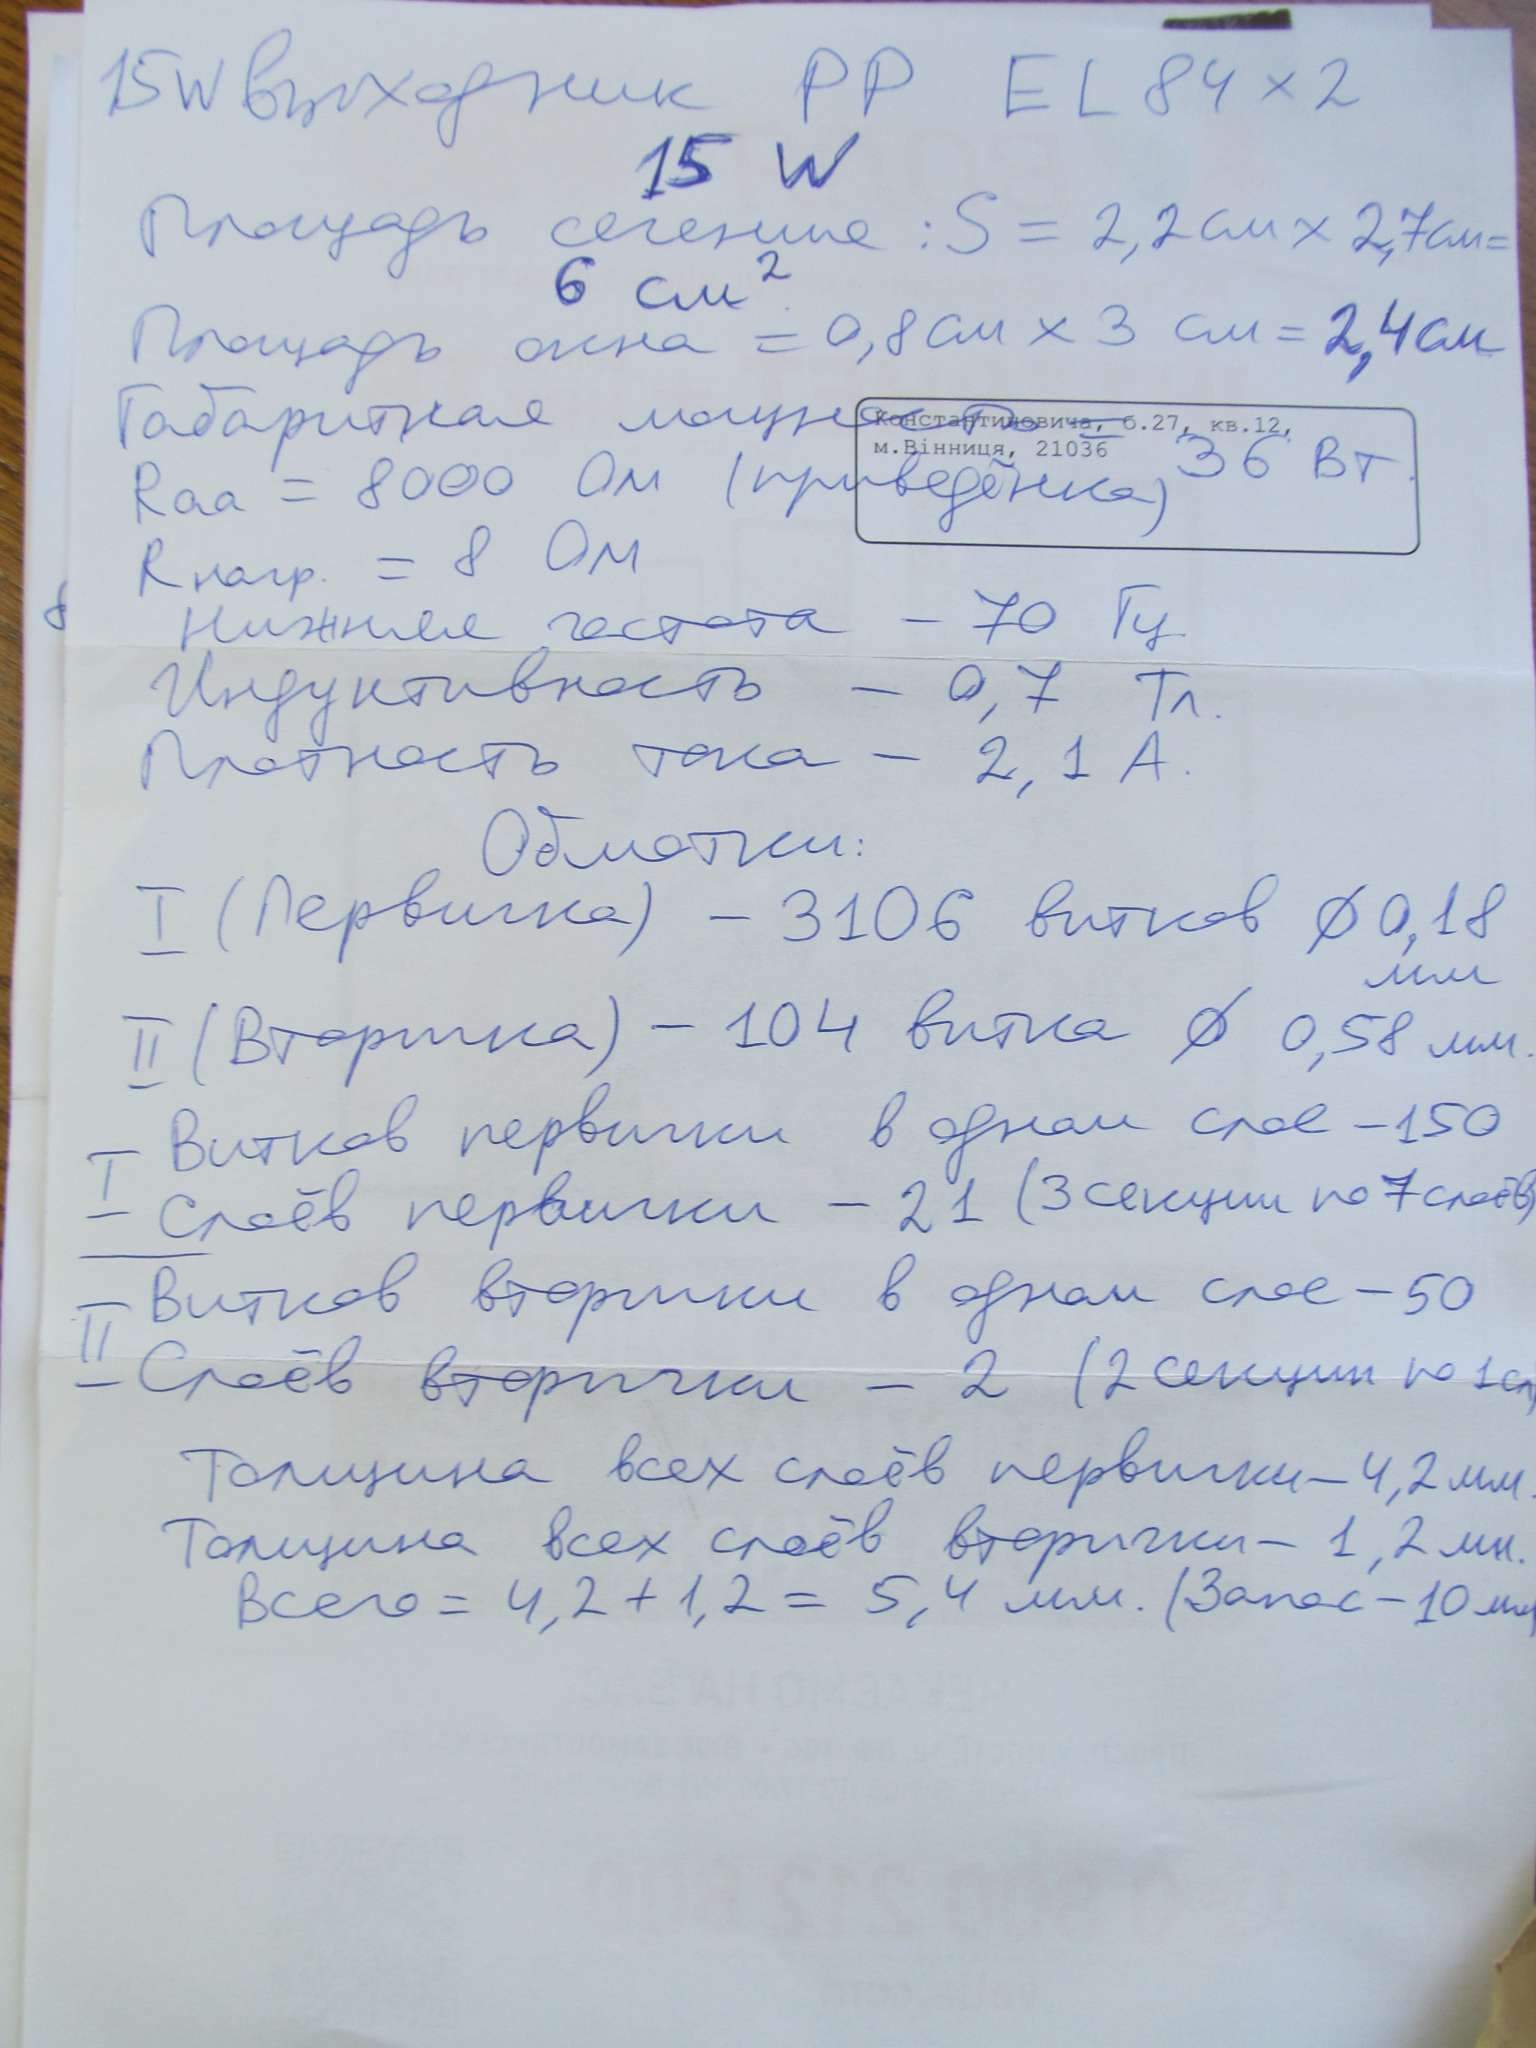 15W выходник PP EL84×2
15 W
Площадь сечение : S = 2,2см × 2,7см =
6 см²
Площадь окна = 0,8см × 3 см = 2,4см
Константиновича, б.27, кв.12,
м.Вінниця, 21036
Габаритная мощность – 36 Вт.
Rаа = 8000 Ом (приведёнка)
Rнагр. = 8 Ом
Нижняя частота – 70 Гц
Индуктивность – 0,7 Тл.
Плотность тока – 2,1 А.
Обмотки:
I (Первичка) – 3106 витков ∅ 0,18
мм
II (Вторичка) – 104 витка ∅ 0,58 мм.
I Витков первички в одном слое – 150
Слоёв первички – 21 (3 секции по 7 слоёв)
II Витков вторички в одном слое – 50
Слоёв вторички – 2 (2 секции по 1 сл
Толщина всех слоёв первички – 4,2 мм.
Толщина всех слоёв вторички – 1,2 мм.
Всего = 4,2 + 1,2 = 5,4 мм. (Запас – 10 мм